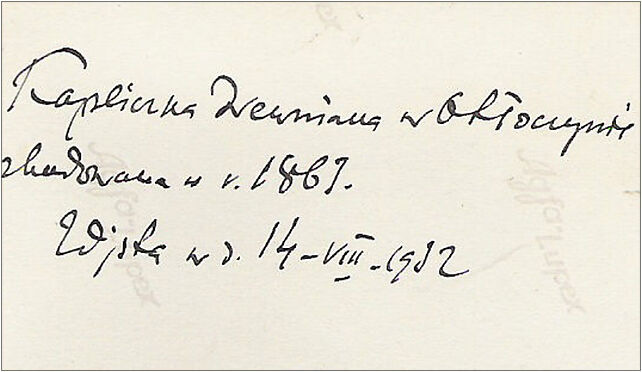 Kapliczka drewniana w Otłoczynie
zbudowana w r. 1863.
Zdjęta w d. 14-VIII-1932
Agfa Lupex
Agfa Lupex